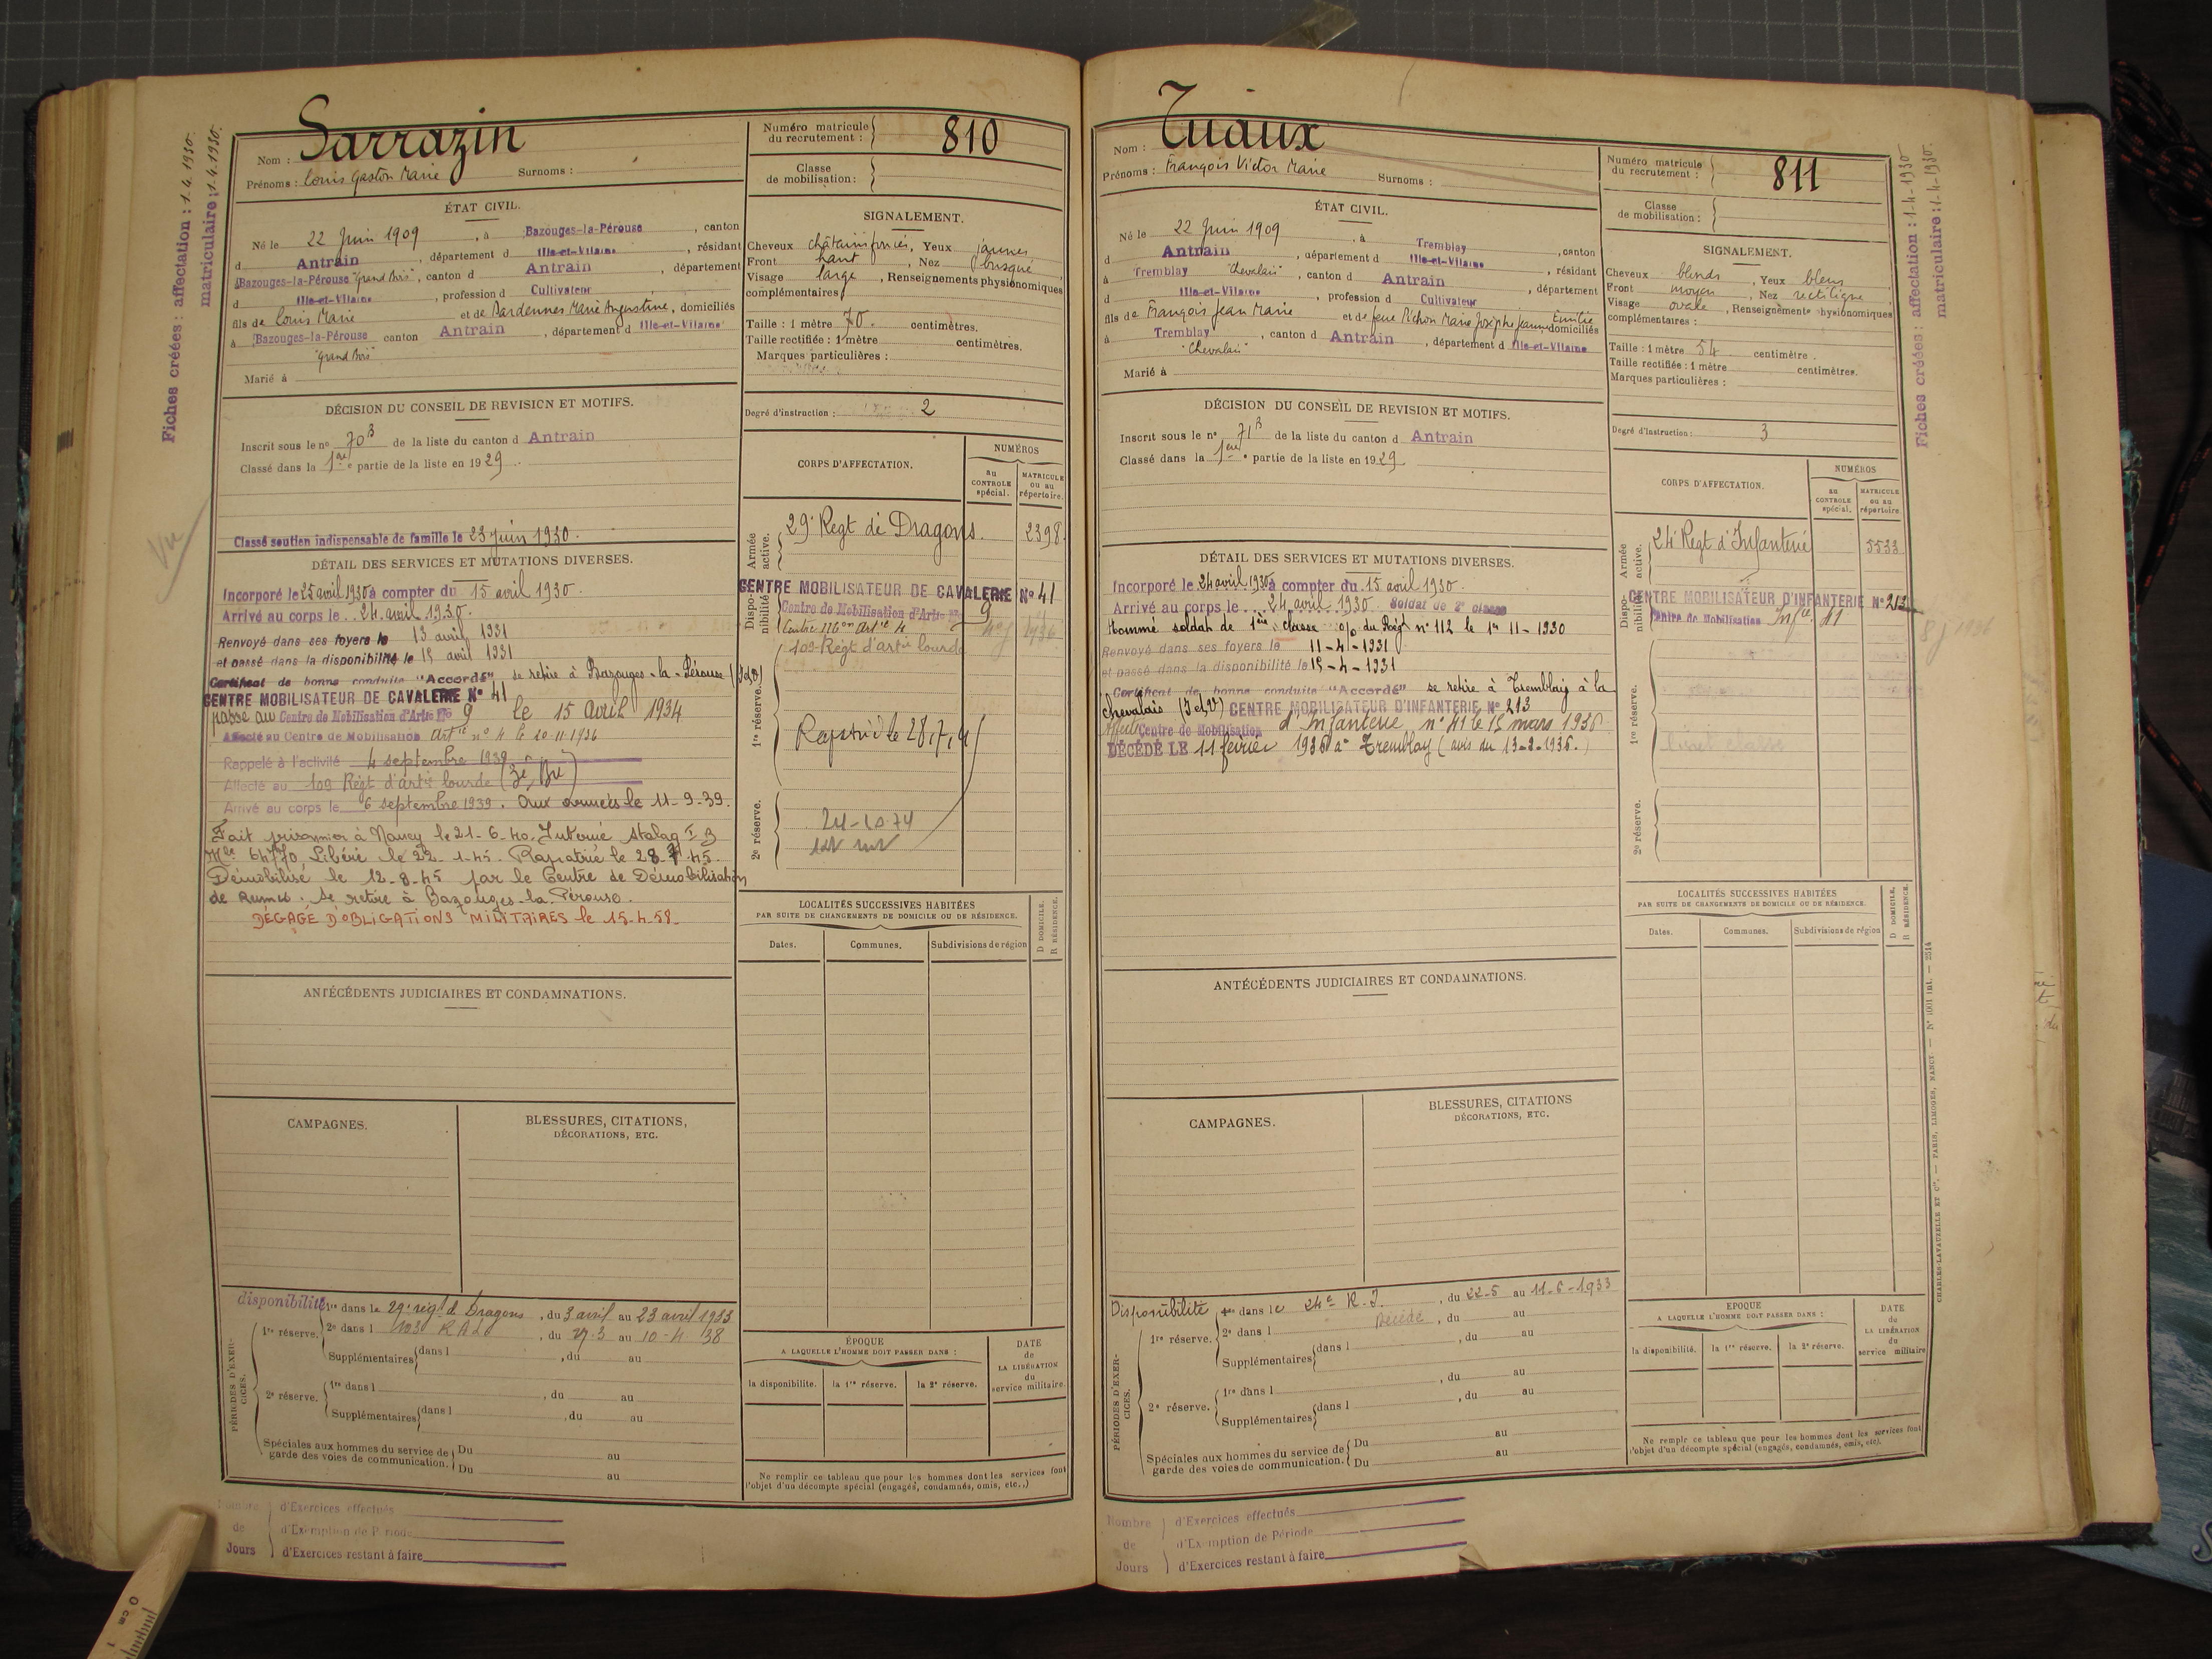 Fiches créées : affectation : 1.4.1930.
matriculaire : 1.4.1930.
Nom : Sarrazin
Prénoms : Louis Gaston Marie Surnoms :
Numéro matricule du recrutement : 810
Classe de mobilisation :
ÉTAT CIVIL.
Né le 22 Juin 1909, à Bazouges-la-Pérouse, canton
d Antrain, département d Ille-et-Vilaine, résidant
Bazouges-la-Pérouse "Grand Bois", canton d Antrain, département
d Ille-et-Vilaine, profession d Cultivateur
fils de Louis Marie et de Dardennes Marie Augustine, domiciliés
à Bazouges-la-Pérouse canton Antrain, département d Ille-et-Vilaine
"Grand Bois"
Marié à
SIGNALEMENT.
Cheveux châtains foncés, Yeux jaunes
Front haut, Nez busqué
Visage large, Renseignements physionomiques
complémentaires
Taille : 1 mètre 70. centimètres.
Taille rectifiée : 1 mètre centimètres.
Marques particulières :
Degré d'instruction : 2
DÉCISION DU CONSEIL DE REVISION ET MOTIFS.
Inscrit sous le no 70 B de la liste du canton d Antrain
Classé dans la 1ère partie de la liste en 1929.
Classé soutien indispensable de famille le 23 juin 1930.
DÉTAIL DES SERVICES ET MUTATIONS DIVERSES.
Incorporé le 25 avril 1930 à compter du 15 avril 1930.
Arrivé au corps le 24 avril 1930.
Renvoyé dans ses foyers le 13 avril 1931
et passé dans la disponibilité le 15 avril 1931
Certificat de bonne conduite "Accordé" se retire à Bazouges-la-Pérouse (I et V)
CENTRE MOBILISATEUR DE CAVALERIE No 41
passé au Centre de Mobilisation d'Artie No 9 le 15 avril 1934
Affecté au Centre de Mobilisation Artie no 4 le 10-11-1936
Rappelé à l'activité 4 septembre 1939
Affecté au 109 Régt d'artie lourde
Arrivé au corps le 6 septembre 1939. Aux armées le 11-9-39.
Fait prisonnier à Nancy le 21-6-40. Interné Stalag I B
Mle 64770 Libéré le 22-1-45. Rapatrié le 28-7-45.
Démobilisé le 12-8-45 par le Centre de Démobilisation
de Rennes. Se retire à Bazouges-la-Pérouse.
DÉGAGÉ D'OBLIGATIONS MILITAIRES le 15-4-58-
Vu
CORPS D'AFFECTATION.
NUMÉROS
au CONTROLE spécial.
MATRICULE ou au répertoire.
Armée active.
29e Regt de Dragons. 2398
CENTRE MOBILISATEUR DE CAVALERIE No 41
Disponibilité
Centre de Mobilisation d'Artie No 9
Centre Mon Artie 4
109e Régt d'artie lourde
1re réserve.
Rapatrié le 28.7.45
2e réserve.
LOCALITÉS SUCCESSIVES HABITÉES
PAR SUITE DE CHANGEMENTS DE DOMICILE OU DE RÉSIDENCE.
D DOMICILE. R RÉSIDENCE.
Dates. Communes. Subdivisions de région
ANTÉCÉDENTS JUDICIAIRES ET CONDAMNATIONS.
CAMPAGNES.
BLESSURES, CITATIONS,
DÉCORATIONS, ETC.
PÉRIODES D'EXERCICES.
disponibilité 1re dans le 29e régt d Dragons, du 3 avril au 23 avril 1933
1re réserve. 2e dans l 103 RAL, du 27.3 au 10-4 38
Supplémentaires dans l , du au
2e réserve. 1re dans l , du au
Supplémentaires dans l , du au
Spéciales aux hommes du service de Du au
garde des voies de communication. Du au
ÉPOQUE
A LAQUELLE L'HOMME DOIT PASSER DANS :
la disponibilité. la 1re réserve. la 2e réserve.
DATE de LA LIBÉRATION du service militaire.
Ne remplir ce tableau que pour les hommes dont les services font
l'objet d'un décompte spécial (engagés, condamnés, omis, etc.,)
Nombre de Jours
d'Exercices effectués
d'Exemption de Période
d'Exercices restant à faire
0 cm 1
Nom : Tuaux
Prénoms : François Victor Marie Surnoms :
Numéro matricule du recrutement : 811
Classe de mobilisation :
ÉTAT CIVIL.
Né le 22 Juin 1909, à Tremblay, canton
d Antrain, département d Ille-et-Vilaine, résidant
à Tremblay "Chevalais", canton d Antrain, département
d Ille-et-Vilaine, profession d Cultivateur
fils de François Jean Marie et de feue Pichon Marie Josèphe Jeanne Emilie domiciliés
à Tremblay, canton d Antrain, département d Ille-et-Vilaine
"Chevalais"
Marié à
SIGNALEMENT.
Cheveux blonds, Yeux bleus
Front moyen, Nez rectiligne
Visage ovale, Renseignements physionomiques
complémentaires :
Taille : 1 mètre 54 centimètre.
Taille rectifiée : 1 mètre centimètres.
Marques particulières :
Degré d'instruction : 3
DÉCISION DU CONSEIL DE REVISION ET MOTIFS.
Inscrit sous le no 71 B de la liste du canton d Antrain
Classé dans la 1ère partie de la liste en 1929
DÉTAIL DES SERVICES ET MUTATIONS DIVERSES.
Incorporé le 24 avril 1930 à compter du 15 avril 1930.
Arrivé au corps le 24 avril 1930 Soldat de 2e classe
Nommé soldat de 1ère classe o/o du Régt no 112 le 1er 11-1930
Renvoyé dans ses foyers le 11-4-1931
et passé dans la disponibilité le 15-4-1931
Certificat de bonne conduite "Accordé" se retire à Tremblay à la
Chevalais (I et V) CENTRE MOBILISATEUR D'INFANTERIE No 213
Affecté Centre de Mobilisation d'Infanterie no 41 le 15 mars 1936
DÉCÉDÉ LE 11 février 1936 à Tremblay (avis du 13-2-1936.)
CORPS D'AFFECTATION.
NUMÉROS
au CONTROLE spécial.
MATRICULE ou au répertoire.
Armée active.
24e Regt d'Infanterie 5533
CENTRE MOBILISATEUR D'INFANTERIE No 213
Disponibilité
Centre de Mobilisation Infie 41
1re réserve.
2e réserve.
LOCALITÉS SUCCESSIVES HABITÉES
PAR SUITE DE CHANGEMENTS DE DOMICILE OU DE RÉSIDENCE.
D DOMICILE. R RÉSIDENCE.
Dates. Communes. Subdivisions de région
ANTÉCÉDENTS JUDICIAIRES ET CONDAMNATIONS.
CAMPAGNES.
BLESSURES, CITATIONS
DÉCORATIONS, ETC.
PÉRIODES D'EXERCICES.
Disponibilité 1re dans le 24e R.I., du 22-5 au 11-6-1933
1re réserve. 2e dans l Décédé, du au
Supplémentaires dans l , du au
2e réserve. 1re dans l , du au
Supplémentaires dans l , du au
Spéciales aux hommes du service de Du au
garde des voies de communication. Du au
EPOQUE
A LAQUELLE L'HOMME DOIT PASSER DANS :
la disponibilité. la 1re réserve. la 2e réserve.
DATE de LA LIBÉRATION du service militaire
Ne remplir ce tableau que pour les hommes dont les services font
l'objet d'un décompte spécial (engagés, condamnés, omis, etc).
Nombre de Jours
d'Exercices effectués
d'Exemption de Période
d'Exercices restant à faire
Fiches créées : affectation : 1-4-1930
matriculaire : 1-4-1930.
CHARLES-LAVAUZELLE ET Cie. — PARIS, LIMOGES, NANCY. — No 1001 int. — 2514